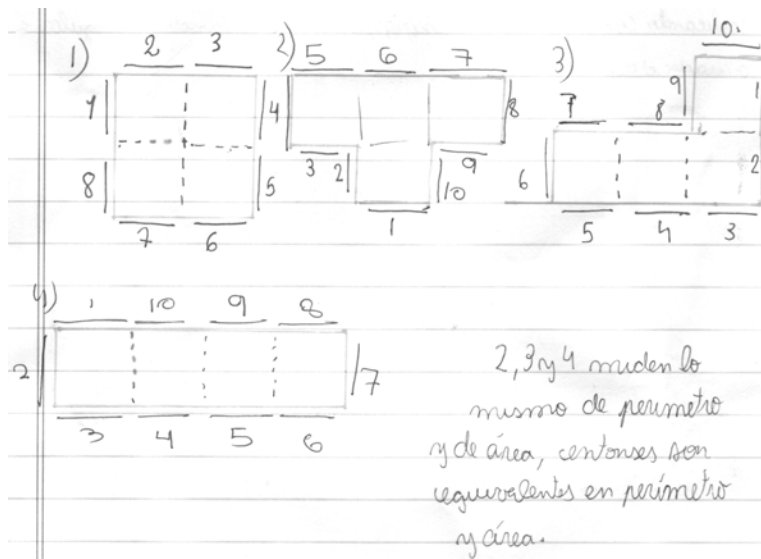 1)
2 3
1 4
8 5
7 6
2)
5 6 7
8
3 2 9
10
1
3)
10.
9 1
7 8
6 2
5 4 3
4)
1 10 9 8
2 7
3 4 5 6
2, 3 y 4 miden lo
mismo de perimetro
y de área, entonses son
equivalentes en perímetro
y área.